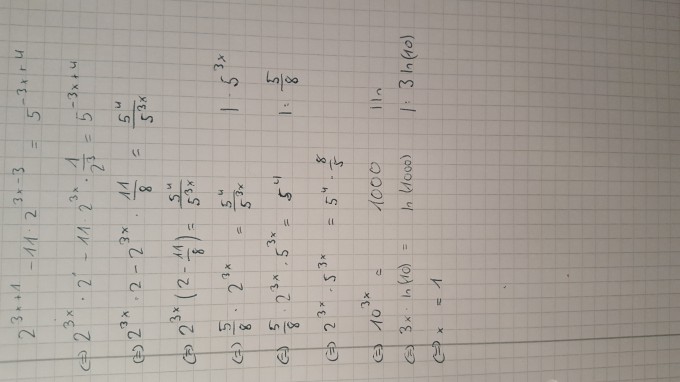 2^{3x+1} - 11 · 2^{3x-3} = 5^{-3x+4}
(=) 2^{3x} · 2^1 - 11 2^{3x} · \frac{1}{2^3} = 5^{-3x+4}
(=) 2^{3x} · 2 - 2^{3x} · \frac{11}{8} = \frac{5^4}{5^{3x}}
(=) 2^{3x} (2 - \frac{11}{8}) = \frac{5^4}{5^{3x}}
(=) \frac{5}{8} · 2^{3x} = \frac{5^4}{5^{3x}} | · 5^{3x}
(=) \frac{5}{8} · 2^{3x} · 5^{3x} = 5^4 | : \frac{5}{8}
(=) 2^{3x} · 5^{3x} = 5^4 · \frac{8}{5}
(=) 10^{3x} = 1000 | ln
(=) 3x · ln(10) = ln(1000) | : 3 ln(10)
(=) x = 1